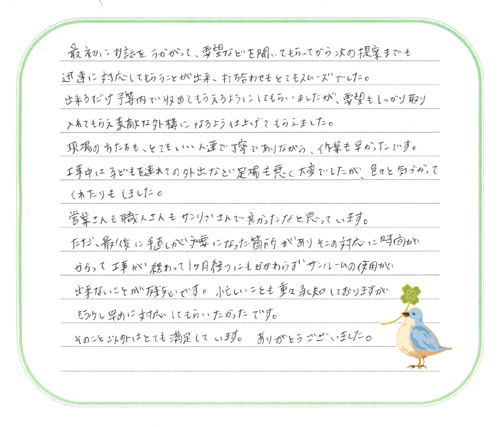 最初にお話をうかがって、要望などを聞いてもらってから次の提案までも
迅速に対応してもらうことが出来、打ち合わせもとてもスムーズでした。
出来るだけ予算内で収めてもらえるようにしてもらいましたが、要望もしっかり取り
入れてもらえ素敵な外構になるよう仕上げてもらえました。
現場の方たちも、とてもいい人達で丁寧でありながら、作業も早かったです。
工事中は子どもを連れての外出など足場も悪く大変でしたが、色々と気づかって
くれたりもしました。
営業さんも職人さんもサンリブさんで良かったなと思っています。
ただ、最後に手直しが必要になった箇所がありその対応に時間が
かかって工事が終わって1ヶ月経つにもかかわらずサンルームの使用が
出来ないことが残念です。忙しいことも重々承知しておりますが
もう少し早めに対応してもらいたかったです。
そのこと以外はとても満足しています。ありがとうございました。